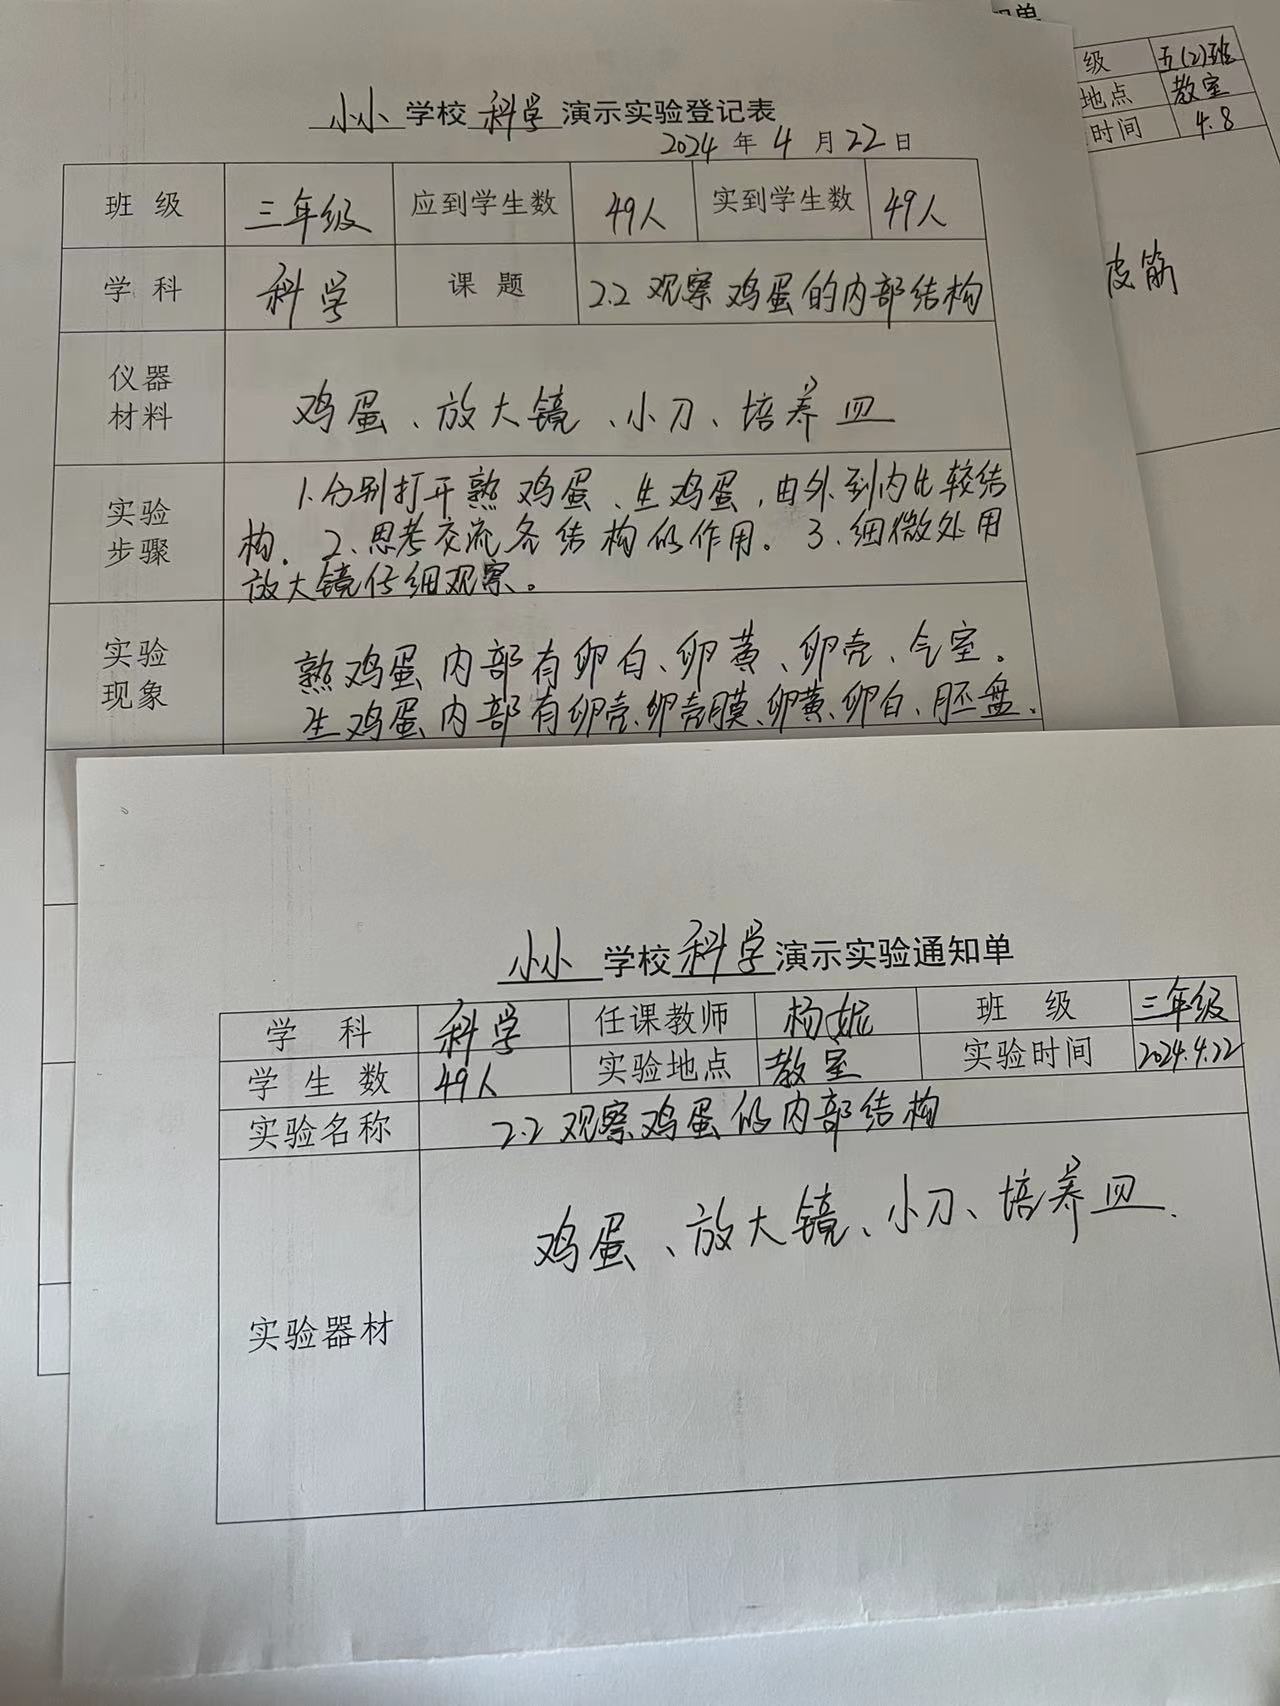 小小 学校 科学 演示实验登记表
2024 年 4 月 22 日
班 级 三年级 应到学生数 49人 实到学生数 49人
学 科 科学 课 题 2.2 观察鸡蛋的内部结构
仪器
材料
鸡蛋、放大镜、小刀、培养皿
实验
步骤
1.分别打开熟鸡蛋、生鸡蛋,由外到内比较结
构。2、思考交流各结构的作用。3、细微处用
放大镜仔细观察。
实验
现象
熟鸡蛋内部有卵白、卵黄、卵壳、气室。
生鸡蛋内部有卵壳、卵壳膜、卵黄、卵白、胚盘.
级 五(2)班
地点 教室
时间 4.8
皮筋
小小 学校 科学 演示实验通知单
学 科 科学 任课教师 杨妮 班 级 三年级
学 生 数 49人 实验地点 教室 实验时间 2024.4.22
实验名称 2.2 观察鸡蛋的内部结构
实验器材
鸡蛋、放大镜、小刀、培养皿.